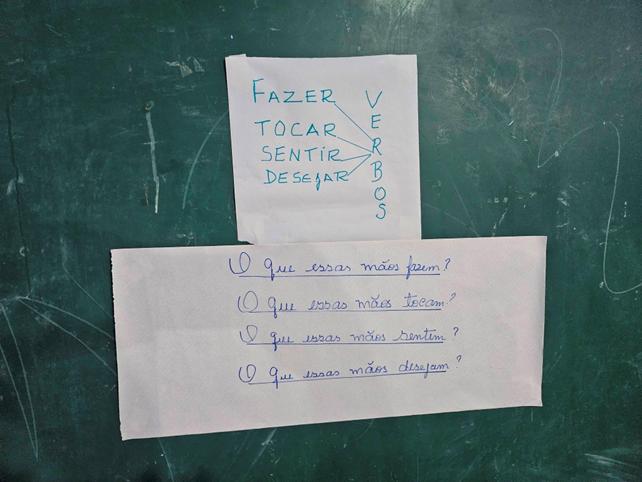 FAZER
TOCAR
SENTIR
DESEJAR
VERBOS
O que essas mãos fazem?
O que essas mãos tocam?
O que essas mãos sentem?
O que essas mãos desejam?